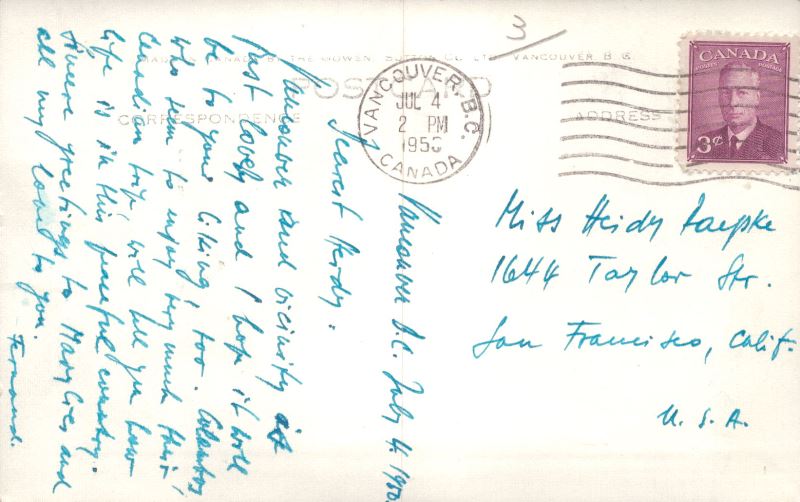 3
MADE IN CANADA BY THE GOWEN SUTTON CO. LTD. VANCOUVER B.C.
POSTCARD
CORRESPONDENCE
ADDRESS
VANCOUVER, B.C.
JUL 4
2 PM
1950
CANADA
CANADA
POSTES POSTAGE
3¢
Vancouver B.C. July 4. 1950
Dearest Heidy.
Vancouver and vicinity is
just lovely and I hope it will
be to your liking, too.
who seem to enjoy very much their
Canadian trip will tell you how
life is in this peaceful country.
Sincere greetings to Marylies, and
all my love to you.
Fernand.
Miss Heidy
1644 Taylor Str.
San Francisco, Calif.
U.S.A.